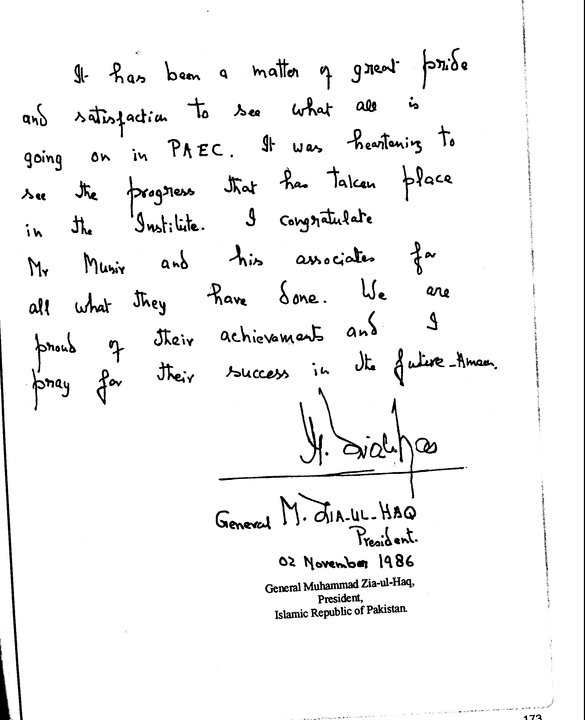 It has been a matter of great pride
and satisfaction to see what all is
going on in PAEC. It was heartening to
see the progress that has taken place
in the Institute. I congratulate
Mr Munir and his associates for
all what they have done. We are
proud of their achievements and I
pray for their success in the future - Ameen.
M. Zia ul Haq
General M. ZIA-UL-HAQ
President.
02 November 1986
General Muhammad Zia-ul-Haq,
President,
Islamic Republic of Pakistan.
173